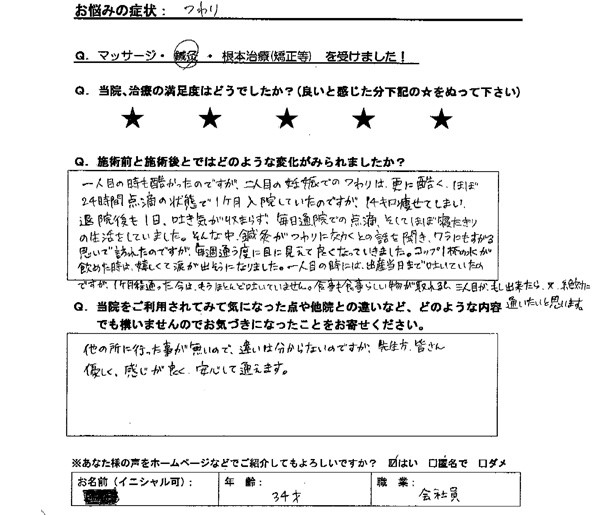 お悩みの症状： つわり
Q．マッサージ・鍼灸・根本治療(矯正等) を受けました！
Q．当院、治療の満足度はどうでしたか？(良いと感じた分下記の☆をぬって下さい)
★ ★ ★ ★ ★
Q．施術前と施術後とではどのような変化がみられましたか？
一人目の時も酷かったのですが、二人目の妊娠でのつわりは、更に酷く、ほぼ
24時間点滴の状態で1ケ月入院していたのですが、14キロ痩せてしまい、
退院後も1日、吐き気が収まらず、毎日通院での点滴、そしてほぼ寝たきり
の生活をしていました。そんな中、鍼灸がつわりになかくとの話を聞き、ワラにもすがる
思いで訪れたのですが、毎週通う度に目に見えて良くなっていきました。コップ1杯の水が
飲めた時は、嬉しくて涙が出そうになりました。一人目の時には、出産当日まで吐いていたの
ですが、1ケ月経過した今は、もうほとんど吐いていません。食事も食事らしい物が取れるし、三人目が、もし出来たら、又、絶対に
通いたいと思います。
Q．当院をご利用されてみて気になった点や他院との違いなど、どのような内容
でも構いませんのでお気づきになったことをお寄せください。
他の所に行った事が無いので、違いは分からないのですが、先生方、皆さん
優しく、感じが良く、安心して通えます。
※あなた様の声をホームページなどでご紹介してもよろしいですか？ ☑はい □匿名で □ダメ
お名前(イニシャル可)： 年 齢： 職 業：
34才 会社員